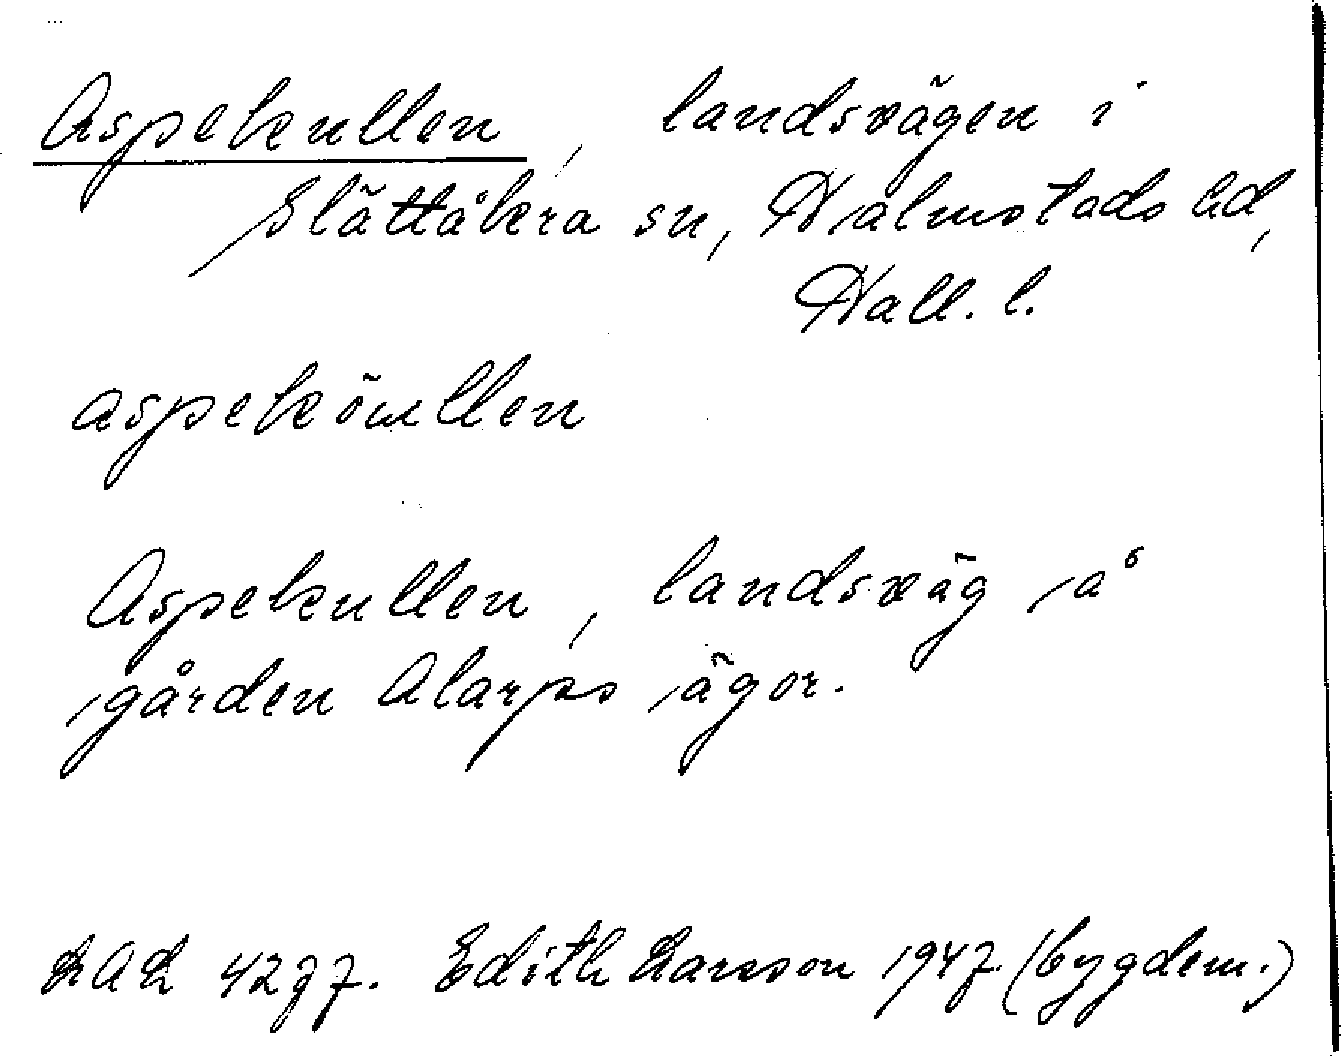 Aspekullen, landsvägen i
Slättåkra sn, Halmstads hd,
Hall. l.
aspeköullen
Aspekullen, landsväg på
gården Alarps ägor.
LAL 4277. Edith Larsson 1947. (bygdem.)